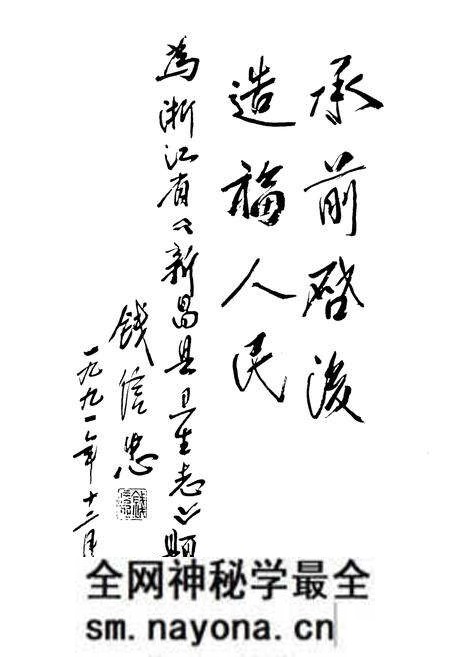 承前啓後
造福人民
為浙江省《新昌县卫生志》题
钱信忠
一九九一年十二月
全网神秘学最全
sm.nayona.cn